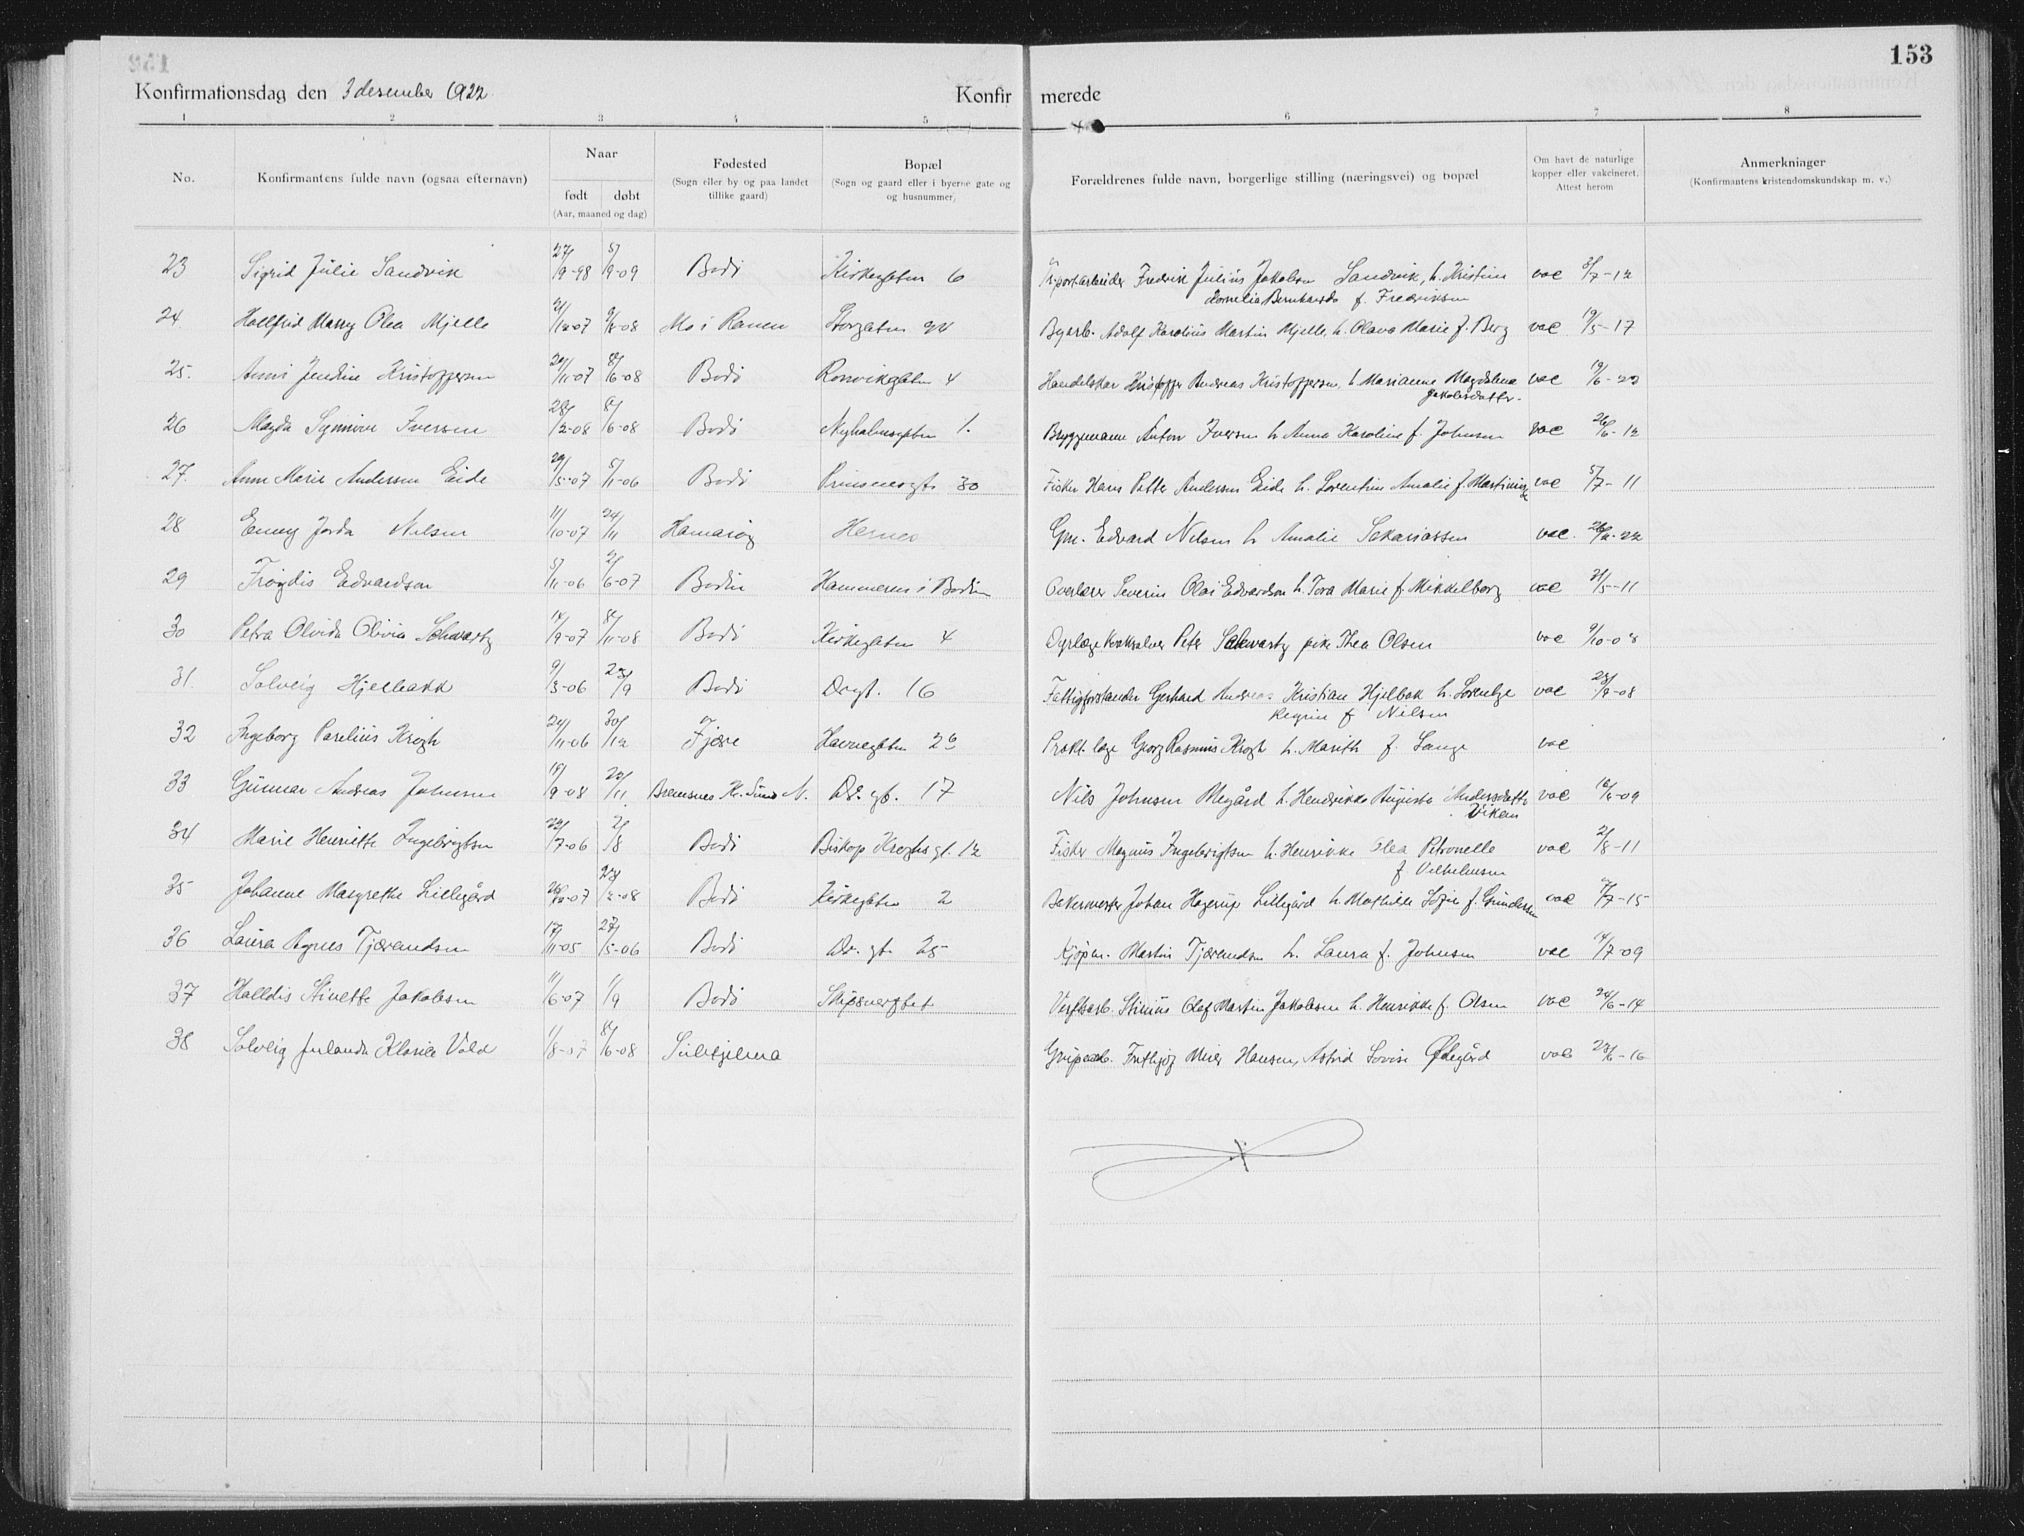 153
Konfirmationsdag den 3 desember 1922
Konfir merede
1 2 3 4 5 6 7 8
No.
Konfirmantens fulde navn (ogsaa efternavn)
Naar
født døbt
(Aar, maaned og dag)
Fødested
(Sogn eller by og paa landet
tillike gaard)
Bopæl
(Sogn og gaard eller i byerne gate og
og husnummer)
Forældrenes fulde navn, borgerlige stilling (næringsvei) og bopæl
Om havt de naturlige
kopper eller vakcineret.
Attest herom
Anmerkninger
(Konfirmantens kristendomskundskap m. v.)
23 Sigrid Julie Sandvik 27/9-98 5/9-09 Bodö Kirkegaten 6 Fredrik Julius Jakobsen Sandvik, h. Kristine vac 8/7-12
Kornelia Bernharda f. Fredriksen
24 Hallfrid Marry Olea Mjelle 21/12-07 9/8-08 Mo i Ranen Storgaten 94 Byarb. Adolf Karolius Martin Mjelle h. Olava Marie f. Berg vac 19/5-17
25. Anni Jendine Kristoffersen 20/11-07 8/6-08 Bodö Rønvikgaten 4 Handelskar Kristoffer Andreas Kristoffersen h. Marianne Magdalena vac 19/6-22
Jakobsdatter.
26 Magda Synnöve Iversen 28/2-08 8/6-08 Bodö Nyholmsgaten 1. Bryggemann Anton Iversen h. Anna Karoline f. Johnsen vac 26/6-12
27. Ann Marie Andersen Eide 29/5-07 5/1-06 Bodö Prinsensgt. 30 Fisker Hans Petter Andersen Eide h. Lorentine Amalie f. vac 5/7-11
28 Enny Jorda Nilsen 11/10-07 24/11 Hamaröy Hernes Gm. Edvard Nilsen h. Amalie Sakariassen vac. 22
29 Fröydis Edvardsen 5/11-06 2/6-07 Bodin Hammeren i Bodin Overlærer Severin Olai Edvardsen h. Tora Marie f. Mikkelborg vac 21/5-11
30 Petra Olvida Olivia Schwartz 14/9-07 8/11-08 Bodö Kirkegaten 4 Dyrlæge Peter Schwartz pike Thea Olsen vac 9/10-08
31. Solveig Hjelbakk 9/3-06 25/9 Bodö Drgt. 16 Fattigforstander Gerhard Andreas Kristian Hjelbak h. Lorentze vac 23/9-08
Regine f. Nilsen
32 Ingeborg Parelius Krogh 24/11-06 30/12 Fjære Havnegaten 26 Prakt. læge Georg Rasmus Krogh h. Marith f. Lange vac
33 Gunnar Andreas Johnsen 19/9-08 22/11 Bremsnes Kr. Sund N. Dr. gt. 17 Nils Johnsen h. Hendrikke Augusta Andersdatter vac 18/6-09
Viken
34 Marie Henriette Ingebrigtsen 22/7-06 2/8 Bodö Biskop Kroghs gt. 12 Fisker Magnus Ingebrigtsen h. Henrikke Elea Petronelle vac 2/8-11
f. Vilhelmsen
35 Johanne Margrethe Lillegård 26/12-07 23/3-08 Bodö Kirkegaten 2 Bakermester Johan Hagerup Lillegård h. Mathilde Sofie f. Gundersen vac 7/7-15
36 Laura Agnes Tjærandsen 17/11-05 27/5-06 Bodö Dr. gt. 25 Kjöpm. Martin Tjærandsen h. Laura f. Johnsen vac 14/7-09
37 Halldis Stinette Jakobsen 11/6-07 1/9 Bodö Skipsvergtet Verftsarb. Stinius Olaf Martin Jakobsen h. Henrikke f. Olsen vac 24/6-14
38 Solveig Jurlanda Klarisa Vold 1/8-07 8/6-08 Sulitjelma Gruparb. Frithjof Hansen, Astrid Lovise Ødegård vac 23/6-16